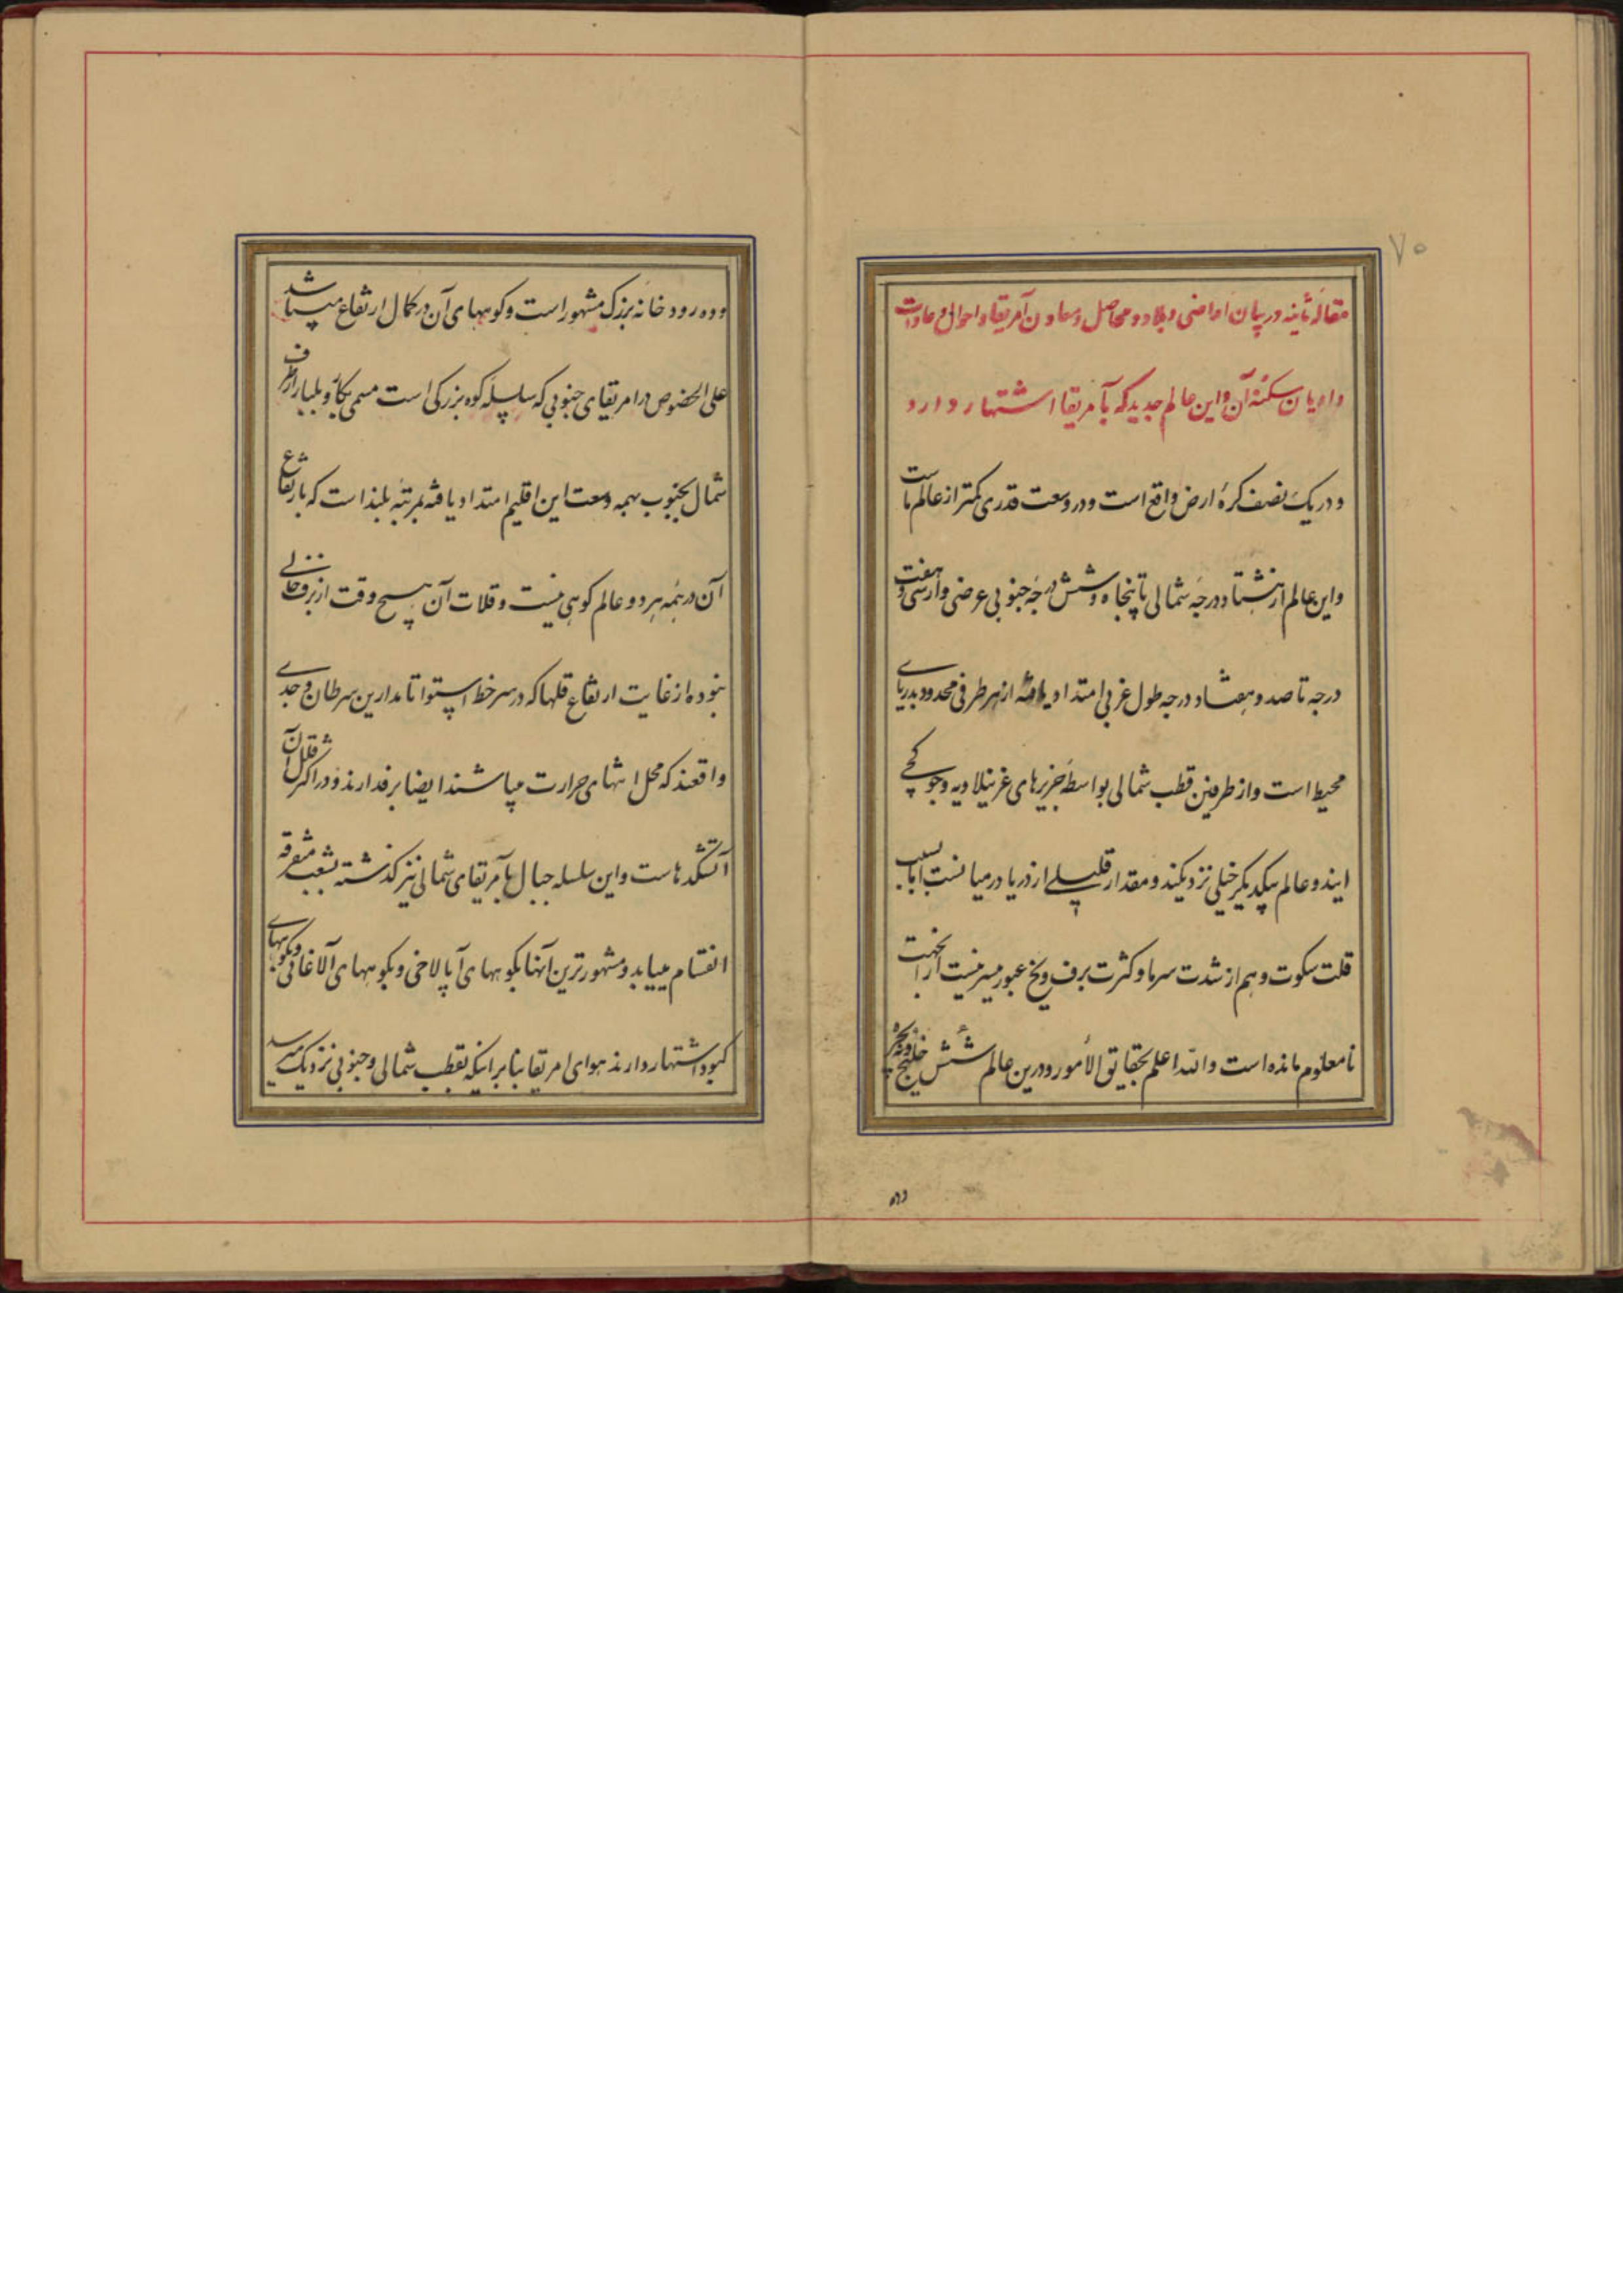 ۷۰
مقاله ثانیه در بیان اراضی و بلاد و محاصل و معادن آمریقا و احوال و عادات
و ادیان سکنهٔ آن و این عالم جدید که بآمریقا اشتهار دارد
و در یک نصف کرهٔ ارض واقع است و در وسعت قدری کمتر از عالم ماست
و این عالم از هشتاد درجهٔ شمالی تا پنجاه و شش درجهٔ جنوبی عرضی و از سی و هفت
درجه تا صد و هفتاد درجه طول غربی امتداد یافته از هر طرفی محدود بدریای
محیط است و از طرفین قطب شمالی بواسطهٔ جزیرهای غرنیلادیه و جوکچی
ایندو عالم بیکدیگر خیلی نزدیکند و مقدار قلیلی از دریا در میانست اما بسبب
قلت سکوت و هم از شدت سرما و کثرت برف و یخ عبور میسر نیست از آنجهت
نامعلوم مانده است والله اعلم بحقایق الأمور و درین عالم شش خلیج و پنج بحیره
وده
وده رودخانه بزرگ مشهور است و کوههای آن در کمال ارتفاع میباشد
علی الخصوص در امریقای جنوبی که سلسله کوه بزرکی است مسمی از طرف
شمال بجنوب بهمه وسعت این اقلیم امتداد یافته بمرتبه بلند است که بارتفاع
آن در همه هر دو عالم کوهی نیست و قلات آن هیچ وقت از برف خالی
نبوده از غایت ارتفاع قلها که در سر خط استوا تا مدارین سرطان و جدی
واقعند که محل انتهای حرارت میباشند ایضا برفدارند و در اکثر قلل آن
آتشکدهاست و این سلسله جبال بآمریقای شمالی نیز کذشته بشعب متفرقه
انقسام مییابد و مشهورترین آنها بکوههای آپالاخی و بکوههای آلاغانی و بکوههای
کبود اشتهار دارند هوای امریقا بنا بر اینکه بقطب شمالی و جنوبی نزدیک میرسد